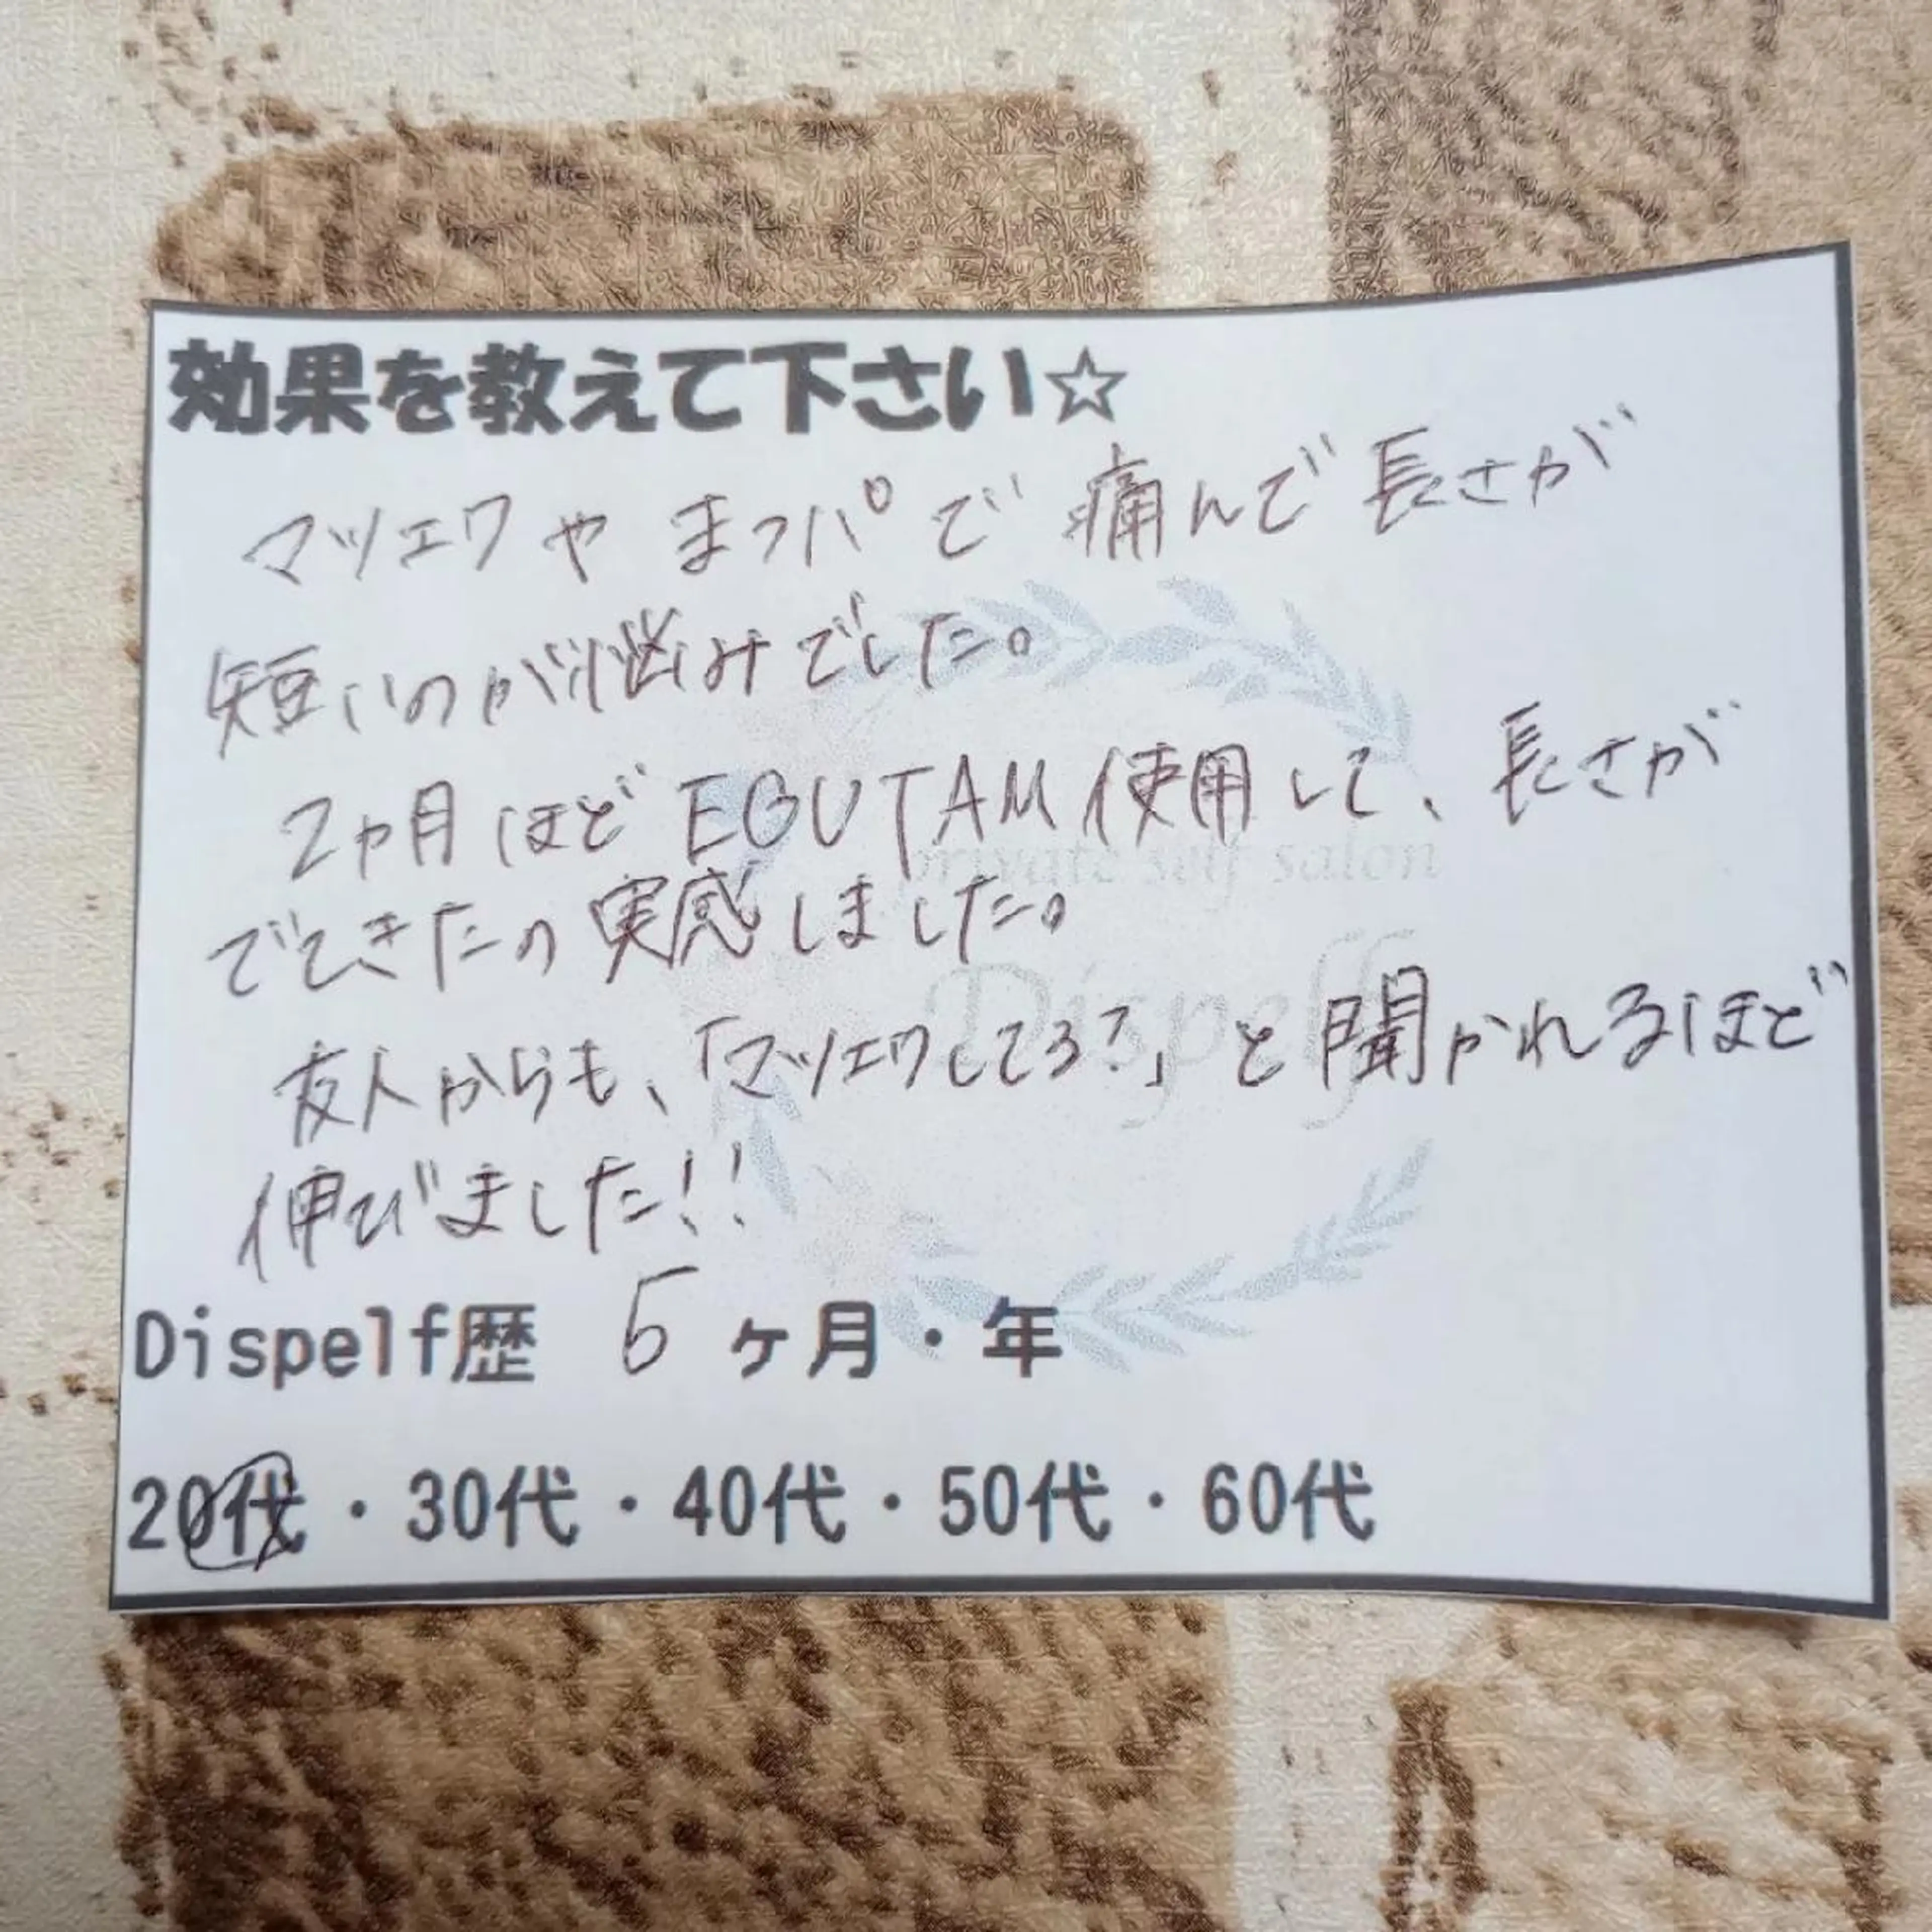 効果を教えて下さい☆
マツエクやまつパで痛んで長さが
短いのが悩みでした。
2ヵ月ほどEGUTAM使用して、長さが
でてきたの実感しました。
友人からも、「マツエクしてる?」と聞かれるほど
伸びました!!
private self salon
Dispelf
Dispelf歴 5 ヶ月・年
20代・30代・40代・50代・60代